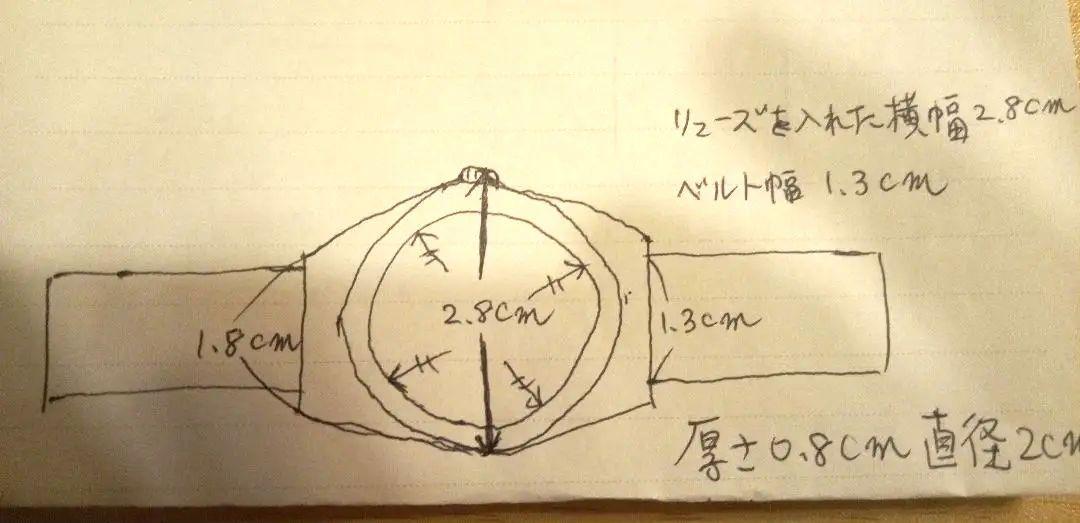 リューズを入れた横幅2.8cm
ベルト幅 1.3cm
2.8cm
1.8cm
1.3cm
厚さ0.8cm 直径2cm